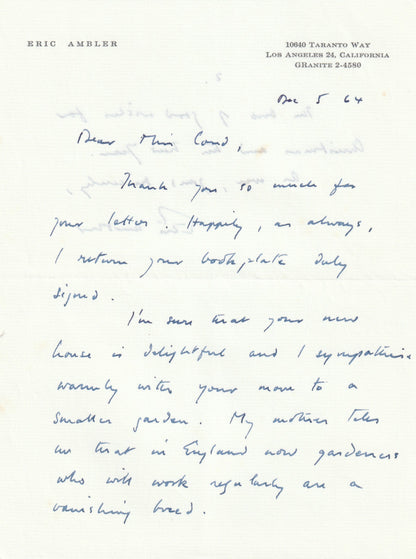 ERIC AMBLER
10640 TARANTO WAY
LOS ANGELES 24, CALIFORNIA
GRANITE 2-4580
Dec 5 64
Dear Miss Cond,
Thank you so much for
your letter. Happily, as always,
I return your bookplate duly
signed.
I'm sure that your new
house is delightful and I sympathise
warmly with your move to a
smaller garden. My mother tells
me that in England now gardeners
who will work regularly are a
vanishing breed.